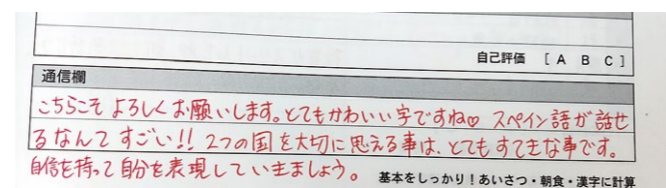 自己評価 [ A B C ]
通信欄
こちらこそ よろしく お願いします。とてもかわいい字ですね♡ スペイン語が話せ
るなんて すごい!! 2つの国を大切に思える事は、とてもすてきな事です。
自信を持って自分を表現していきましょう。
基本をしっかり!あいさつ・朝食・漢字に計算